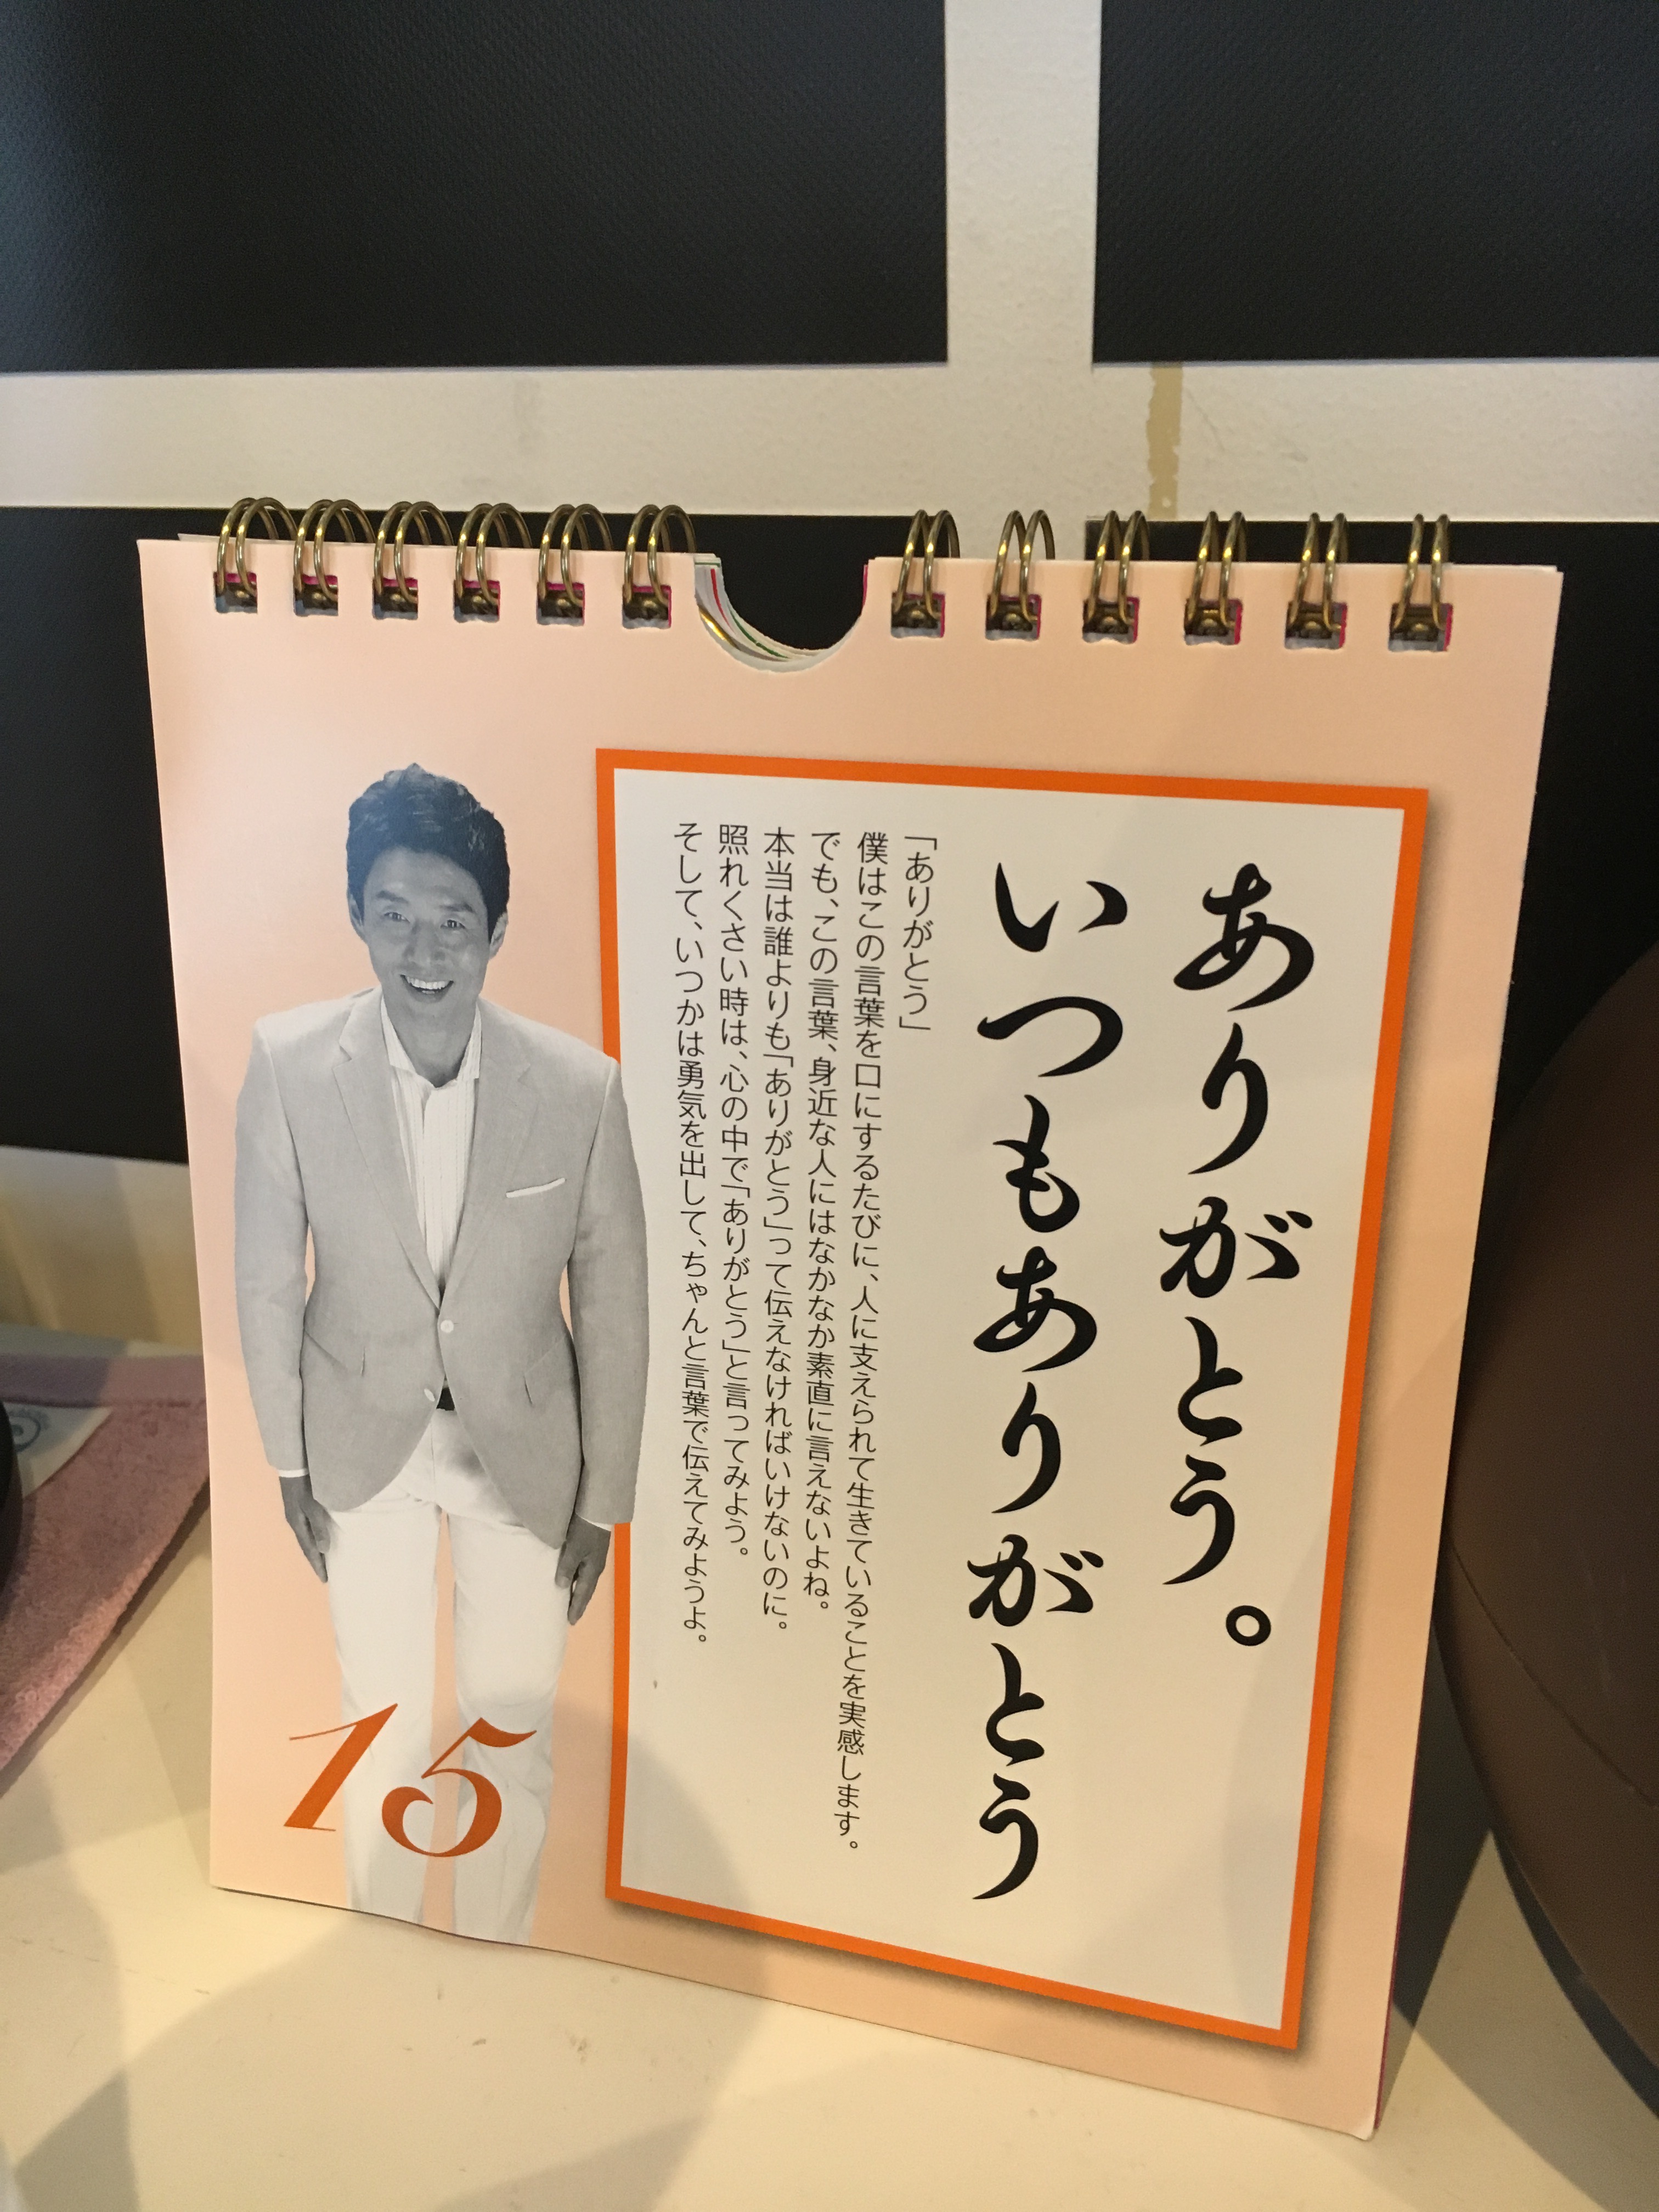 ありがとう。
いつもありがとう
「ありがとう」
僕はこの言葉を口にするたびに、人に支えられて生きていることを実感します。
でも、この言葉、身近な人にはなかなか素直に言えないよね。
本当は誰よりも「ありがとう」って伝えなければいけないのに。
照れくさい時は、心の中で「ありがとう」と言ってみよう。
そして、いつかは勇気を出して、ちゃんと言葉で伝えてみようよ。
15